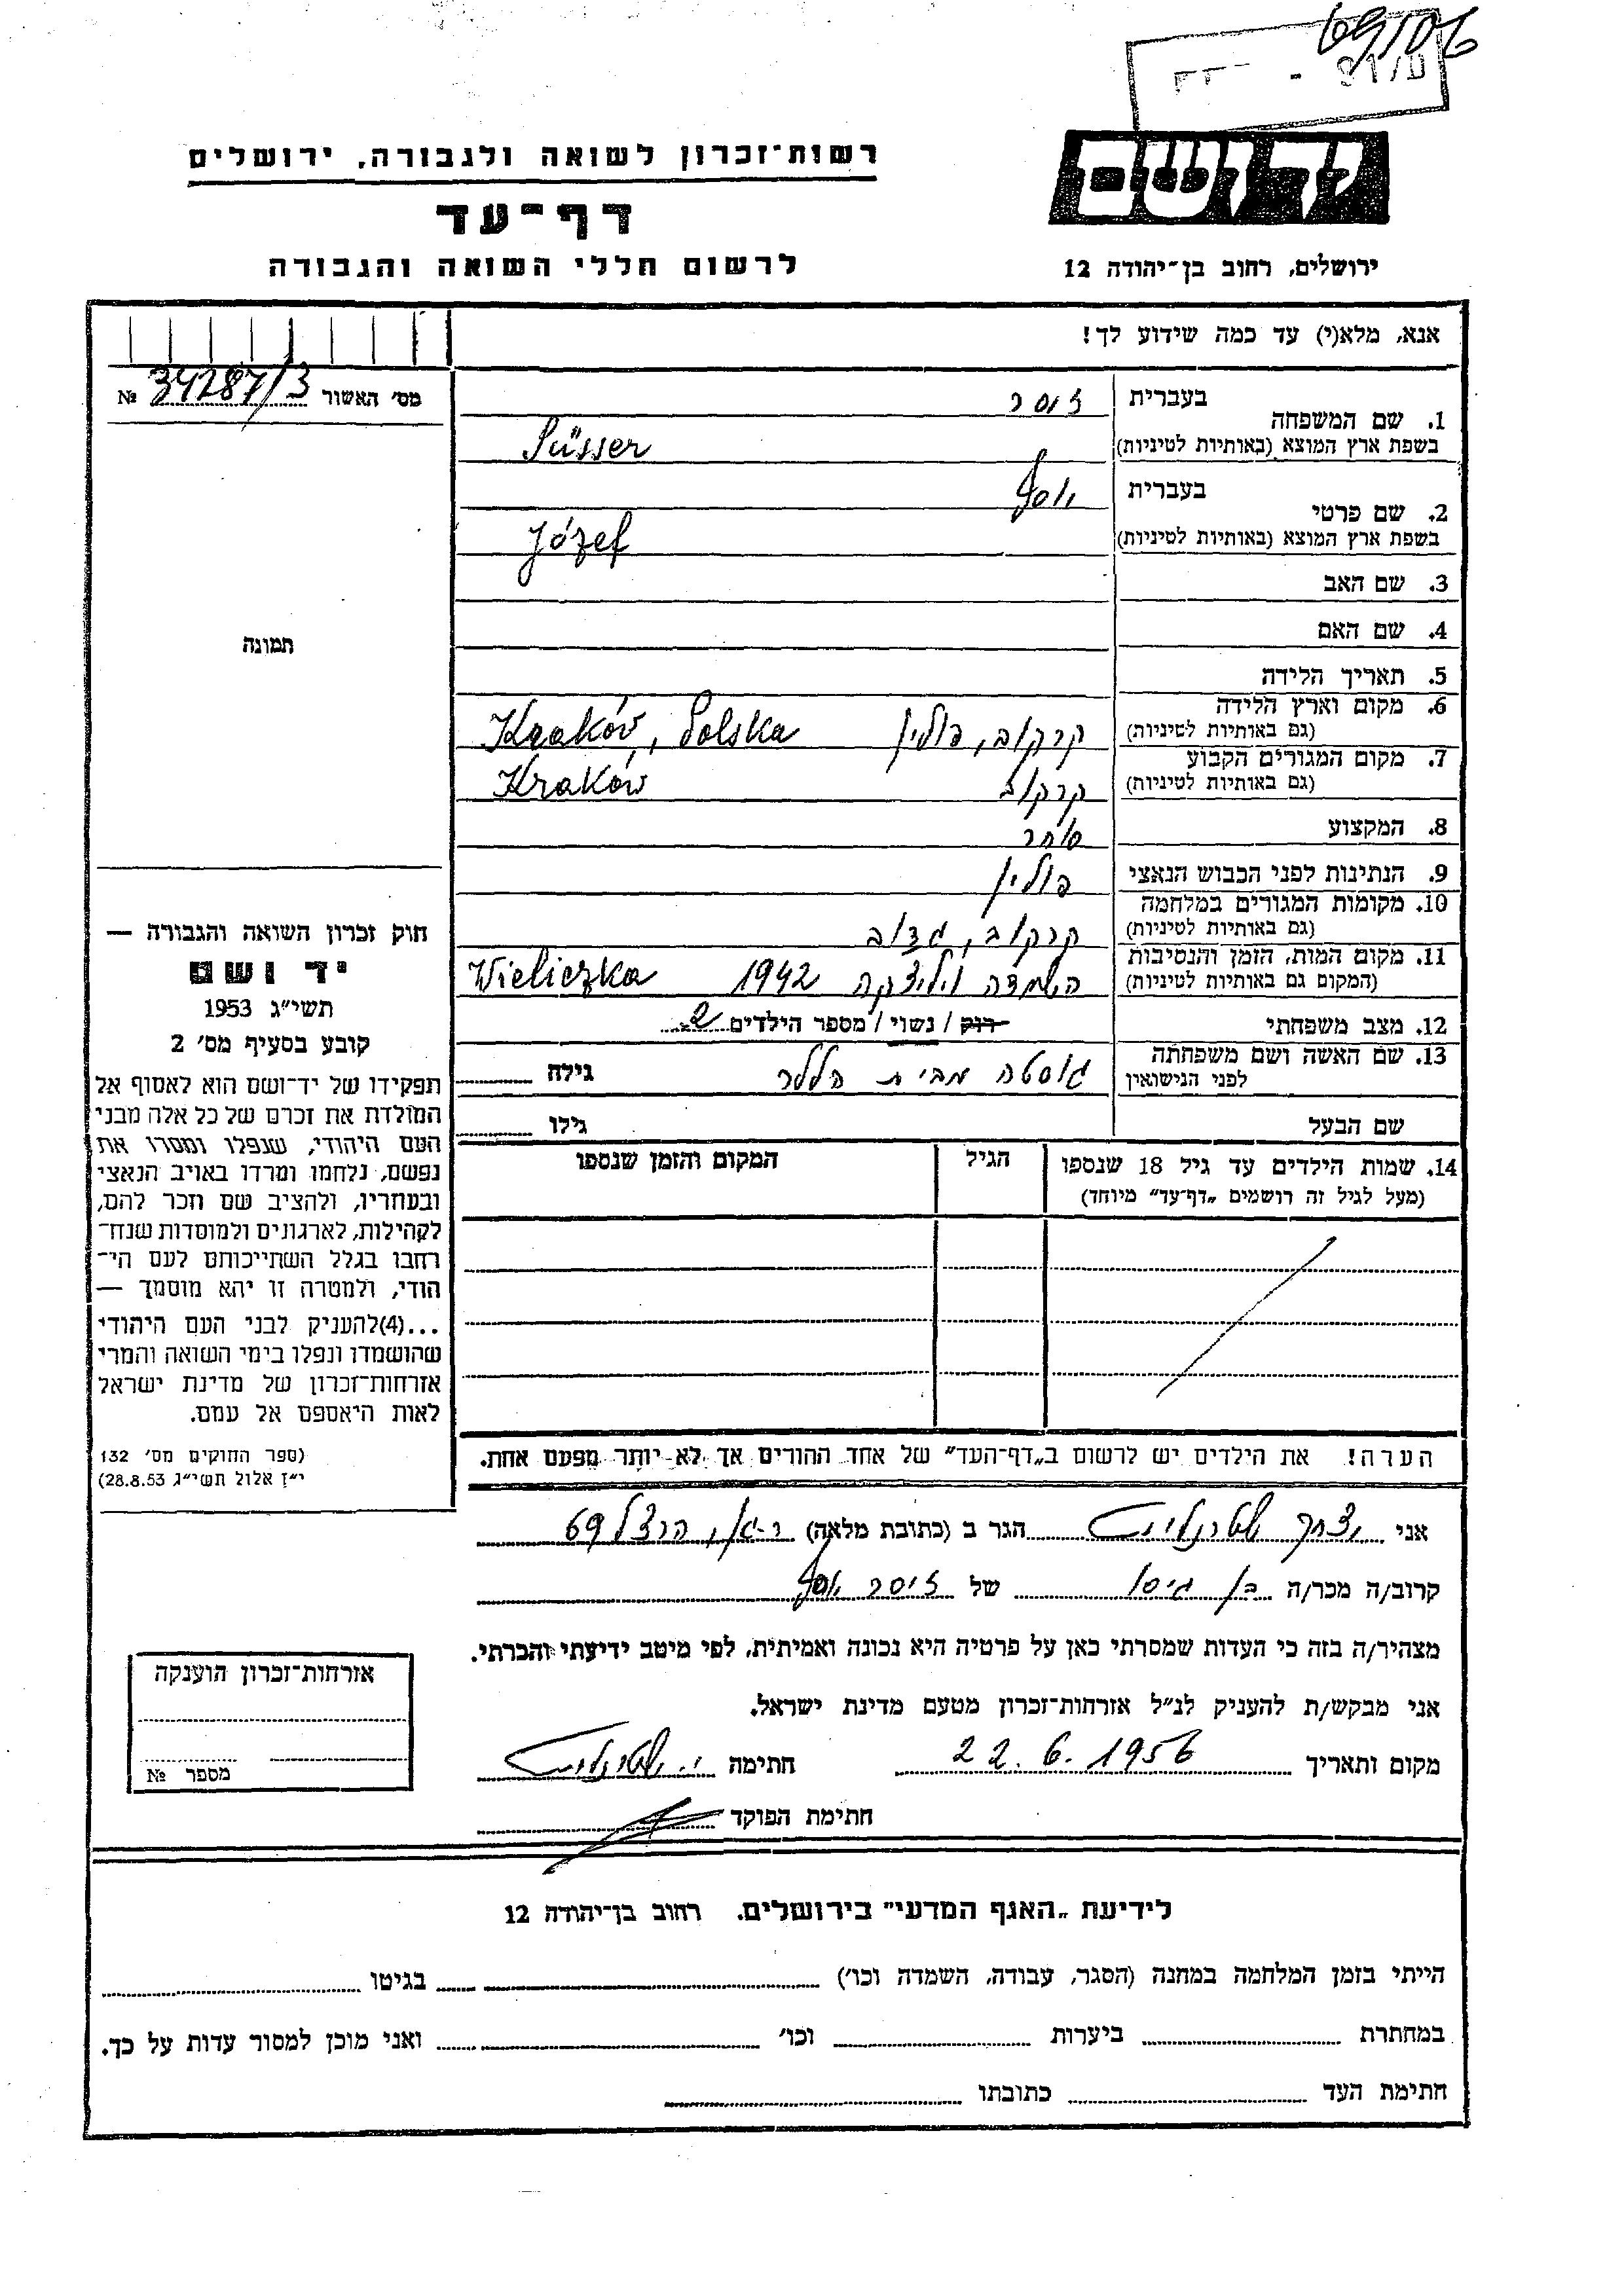 69/06
רשות־זכרון לשואה ולגבורה, ירושלים
דף־עד
לרשום חללי השואה והגבורה
יד ושם
ירושלים, רחוב בן־יהודה 12
אנא, מלא(י) עד כמה שידוע לך!
מס' האשור 34287/3 №
1. שם המשפחה
בעברית זוסר
בשפת ארץ המוצא (באותיות לטיניות) Süsser
2. שם פרטי
בעברית יוסף
בשפת ארץ המוצא (באותיות לטיניות) Józef
3. שם האב
4. שם האם
5. תאריך הלידה
6. מקום וארץ הלידה
(גם באותיות לטיניות) קרקוב, פולין Kraków, Polska
7. מקום המגורים הקבוע
(גם באותיות לטיניות) קרקוב Kraków
8. המקצוע סוחר
9. הנתינות לפני הכבוש הנאצי פולין
10. מקומות המגורים במלחמה
(גם באותיות לטיניות) קרקוב, גדוב
11. מקום המות, הזמן והנסיבות
(המקום גם באותיות לטיניות) השמדה ויליצקה 1942 Wieliczka
12. מצב משפחתי רוק / נשוי / מספר הילדים 2
13. שם האשה ושם משפחתה
לפני הנישואין גוסטה מבית הללר גילה
שם הבעל גילו
14. שמות הילדים עד גיל 18 שנספו הגיל המקום והזמן שנספו
(מעל לגיל זה רושמים „דף־עד" מיוחד)
הערה! את הילדים יש לרשום ב„דף־העד" של אחד ההורים אך לא יותר מפעם אחת.
תמונה
חוק זכרון השואה והגבורה —
יד ושם
תשי"ג 1953
קובע בסעיף מס' 2
תפקידו של יד־ושם הוא לאסוף אל
המולדת את זכרם של כל אלה מבני
העם היהודי, שנפלו ומסרו את
נפשם, נלחמו ומרדו באויב הנאצי
ובעוזריו, ולהציב שם וזכר להם,
לקהילות, לארגונים ולמוסדות שנח־
רבו בגלל השתייכותם לעם הי־
הודי, ולמטרה זו יהא מוסמך —
...(4)להעניק לבני העם היהודי
שהושמדו ונפלו בימי השואה והמרי
אזרחות־זכרון של מדינת ישראל
לאות היאספם אל עמם.
(ספר החוקים מס' 132
י"ז אלול תשי"ג 28.8.53)
אני יצחק הגר ב (כתובת מלאה) ר-גן, הרצל 69
קרוב/ה מכר/ה בן גיסו של זיסר יוסף
מצהיר/ה בזה כי העדות שמסרתי כאן על פרטיה היא נכונה ואמיתית, לפי מיטב ידיעתי והכרתי.
אני מבקש/ת להעניק לנ"ל אזרחות־זכרון מטעם מדינת ישראל.
מקום ותאריך 22.6.1956 חתימה
חתימת הפוקד
אזרחות־זכרון הוענקה
מספר №
לידיעת „האגף המדעי" בירושלים. רחוב בן־יהודה 12
הייתי בזמן המלחמה במחנה (הסגר, עבודה, השמדה וכו') בגיטו
במחתרת ביערות וכו' ואני מוכן למסור עדות על כך.
חתימת העד כתובתו